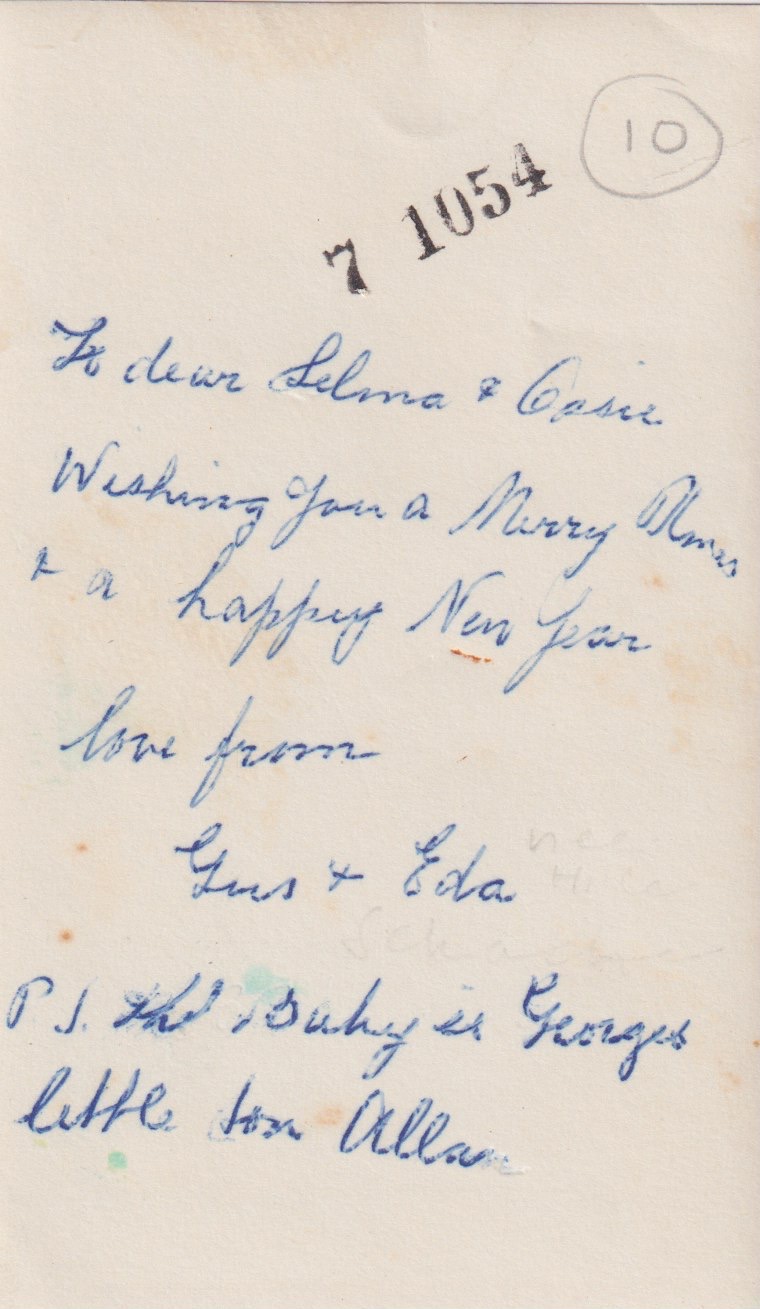 10
7 1054
To dear Selma & Ossie
Wishing you a Merry Xmas
& a happy New Year
love from
Gus + Eda
nee
P.S. the Baby is Georges
little son Allan